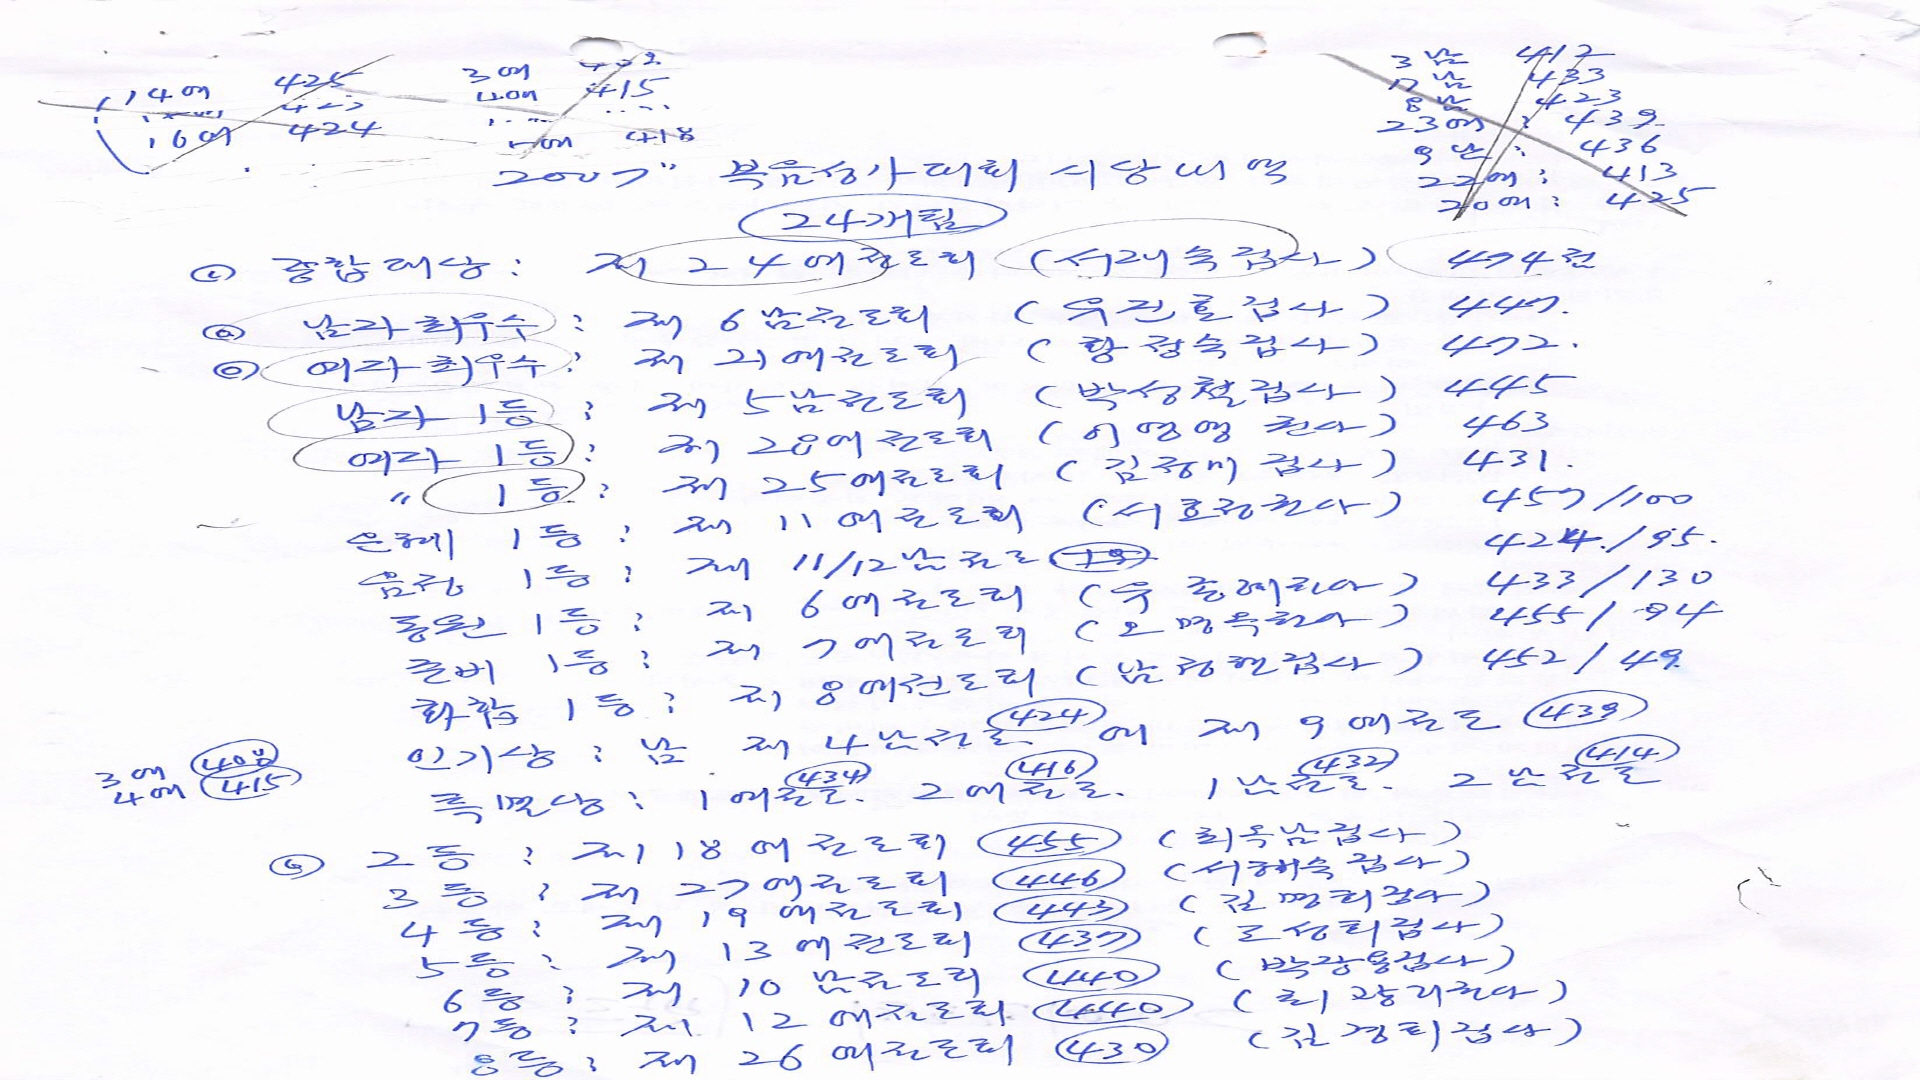 14여 425
16여 424
3여
4여 415
5여 418
3남 412
17남 433
8남 423
23여 : 439.
9남 : 436
22여 : 413
20여 : 425
2007" 복음성가대회 시상내역
24개팀
종합대상 : 제 24여전도회 (서래숙집사) 474점
남자최우수 : 제 6남전도회 (우전효집사) 447.
여자최우수 : 제 21여전도회 (황정숙집사) 472.
남자 1등 : 제 5남전도회 (박성철집사) 445
여자 1등 : 제 28여전도회 (이영영권사) 463
" 1등 : 제 25여전도회 (김정미집사) 431.
은혜 1등 : 제 11여전도회 (서효정권사) 457/100
음정 1등 : 제 11/12남전도 424./95.
동원 1등 : 제 6여전도회 433/130
준비 1등 : 제 7여전도회 (오명옥권사) 455/94
화합 1등 : 제 8여전도회 (남정현집사) 452/49
인기상 : 남 제 4남전도 424 여 제 9여전도 439
3여 408
4여 415
특별상 : 1여전도 434. 2여전도 416. 1남전도 432. 2남전도 414
2등 : 제 18여전도회 455 (최옥남집사)
3등 : 제 27여전도회 446 (서해숙집사)
4등 : 제 19여전도회 443 (김명희집사)
5등 : 제 13여전도회 437 (조성희집사)
6등 : 제 10남전도회 440 (박광용집사)
7등 : 제 12여전도회 440
8등 : 제 26여전도회 430 (김경희집사)